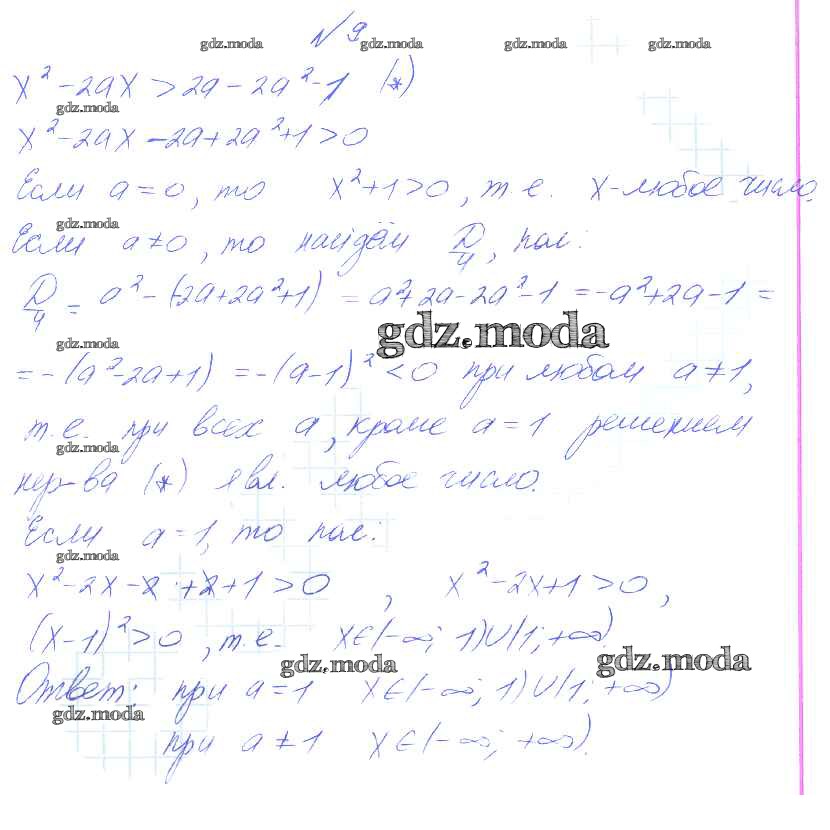 № 9
gdz.moda gdz.moda gdz.moda gdz.moda
x² - 2ax > 2a - 2a² - 1 (*)
gdz.moda
x² - 2ax - 2a + 2a² + 1 > 0
Если a = 0, то x² + 1 > 0, т.е. x - любое число.
gdz.moda
Если a ≠ 0, то найдём D/4, пол:
D/4 = a² - (-2a + 2a² + 1) = a² + 2a - 2a² - 1 = -a² + 2a - 1 =
gdz.moda
gdz.moda
= -(a² - 2a + 1) = -(a - 1)² < 0 при любом a ≠ 1,
т.е. при всех a, кроме a = 1 решением
gdz.moda
нер-ва (*) явл. любое число.
Если a = 1, то пол:
gdz.moda
x² - 2x - 2 + 2 + 1 > 0, x² - 2x + 1 > 0,
(x - 1)² > 0, т.е. x ∈ (-∞; 1) ∪ (1; +∞)
gdz.moda gdz.moda
Ответ: при a = 1 x ∈ (-∞; 1) ∪ (1; +∞)
gdz.moda
при a ≠ 1 x ∈ (-∞; +∞).